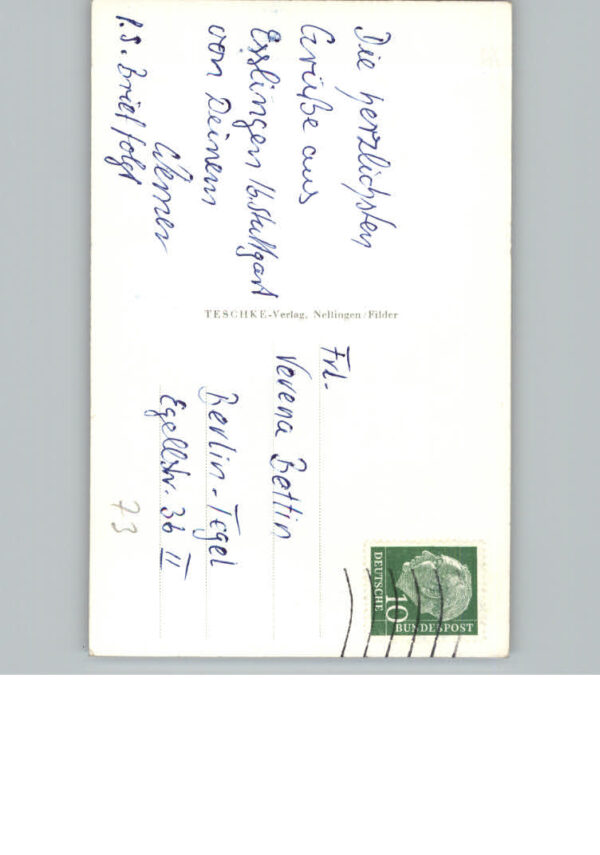 Die herzlichsten
Grüße aus
Esslingen b. Stuttgart
von Deinem
Werner
P.S. Brief folgt
TESCHKE-Verlag, Nellingen/Filder
Frl.
Verena Bettin
Berlin-Tegel
Egellstr. 36 II
73
DEUTSCHE
10
BUNDESPOST